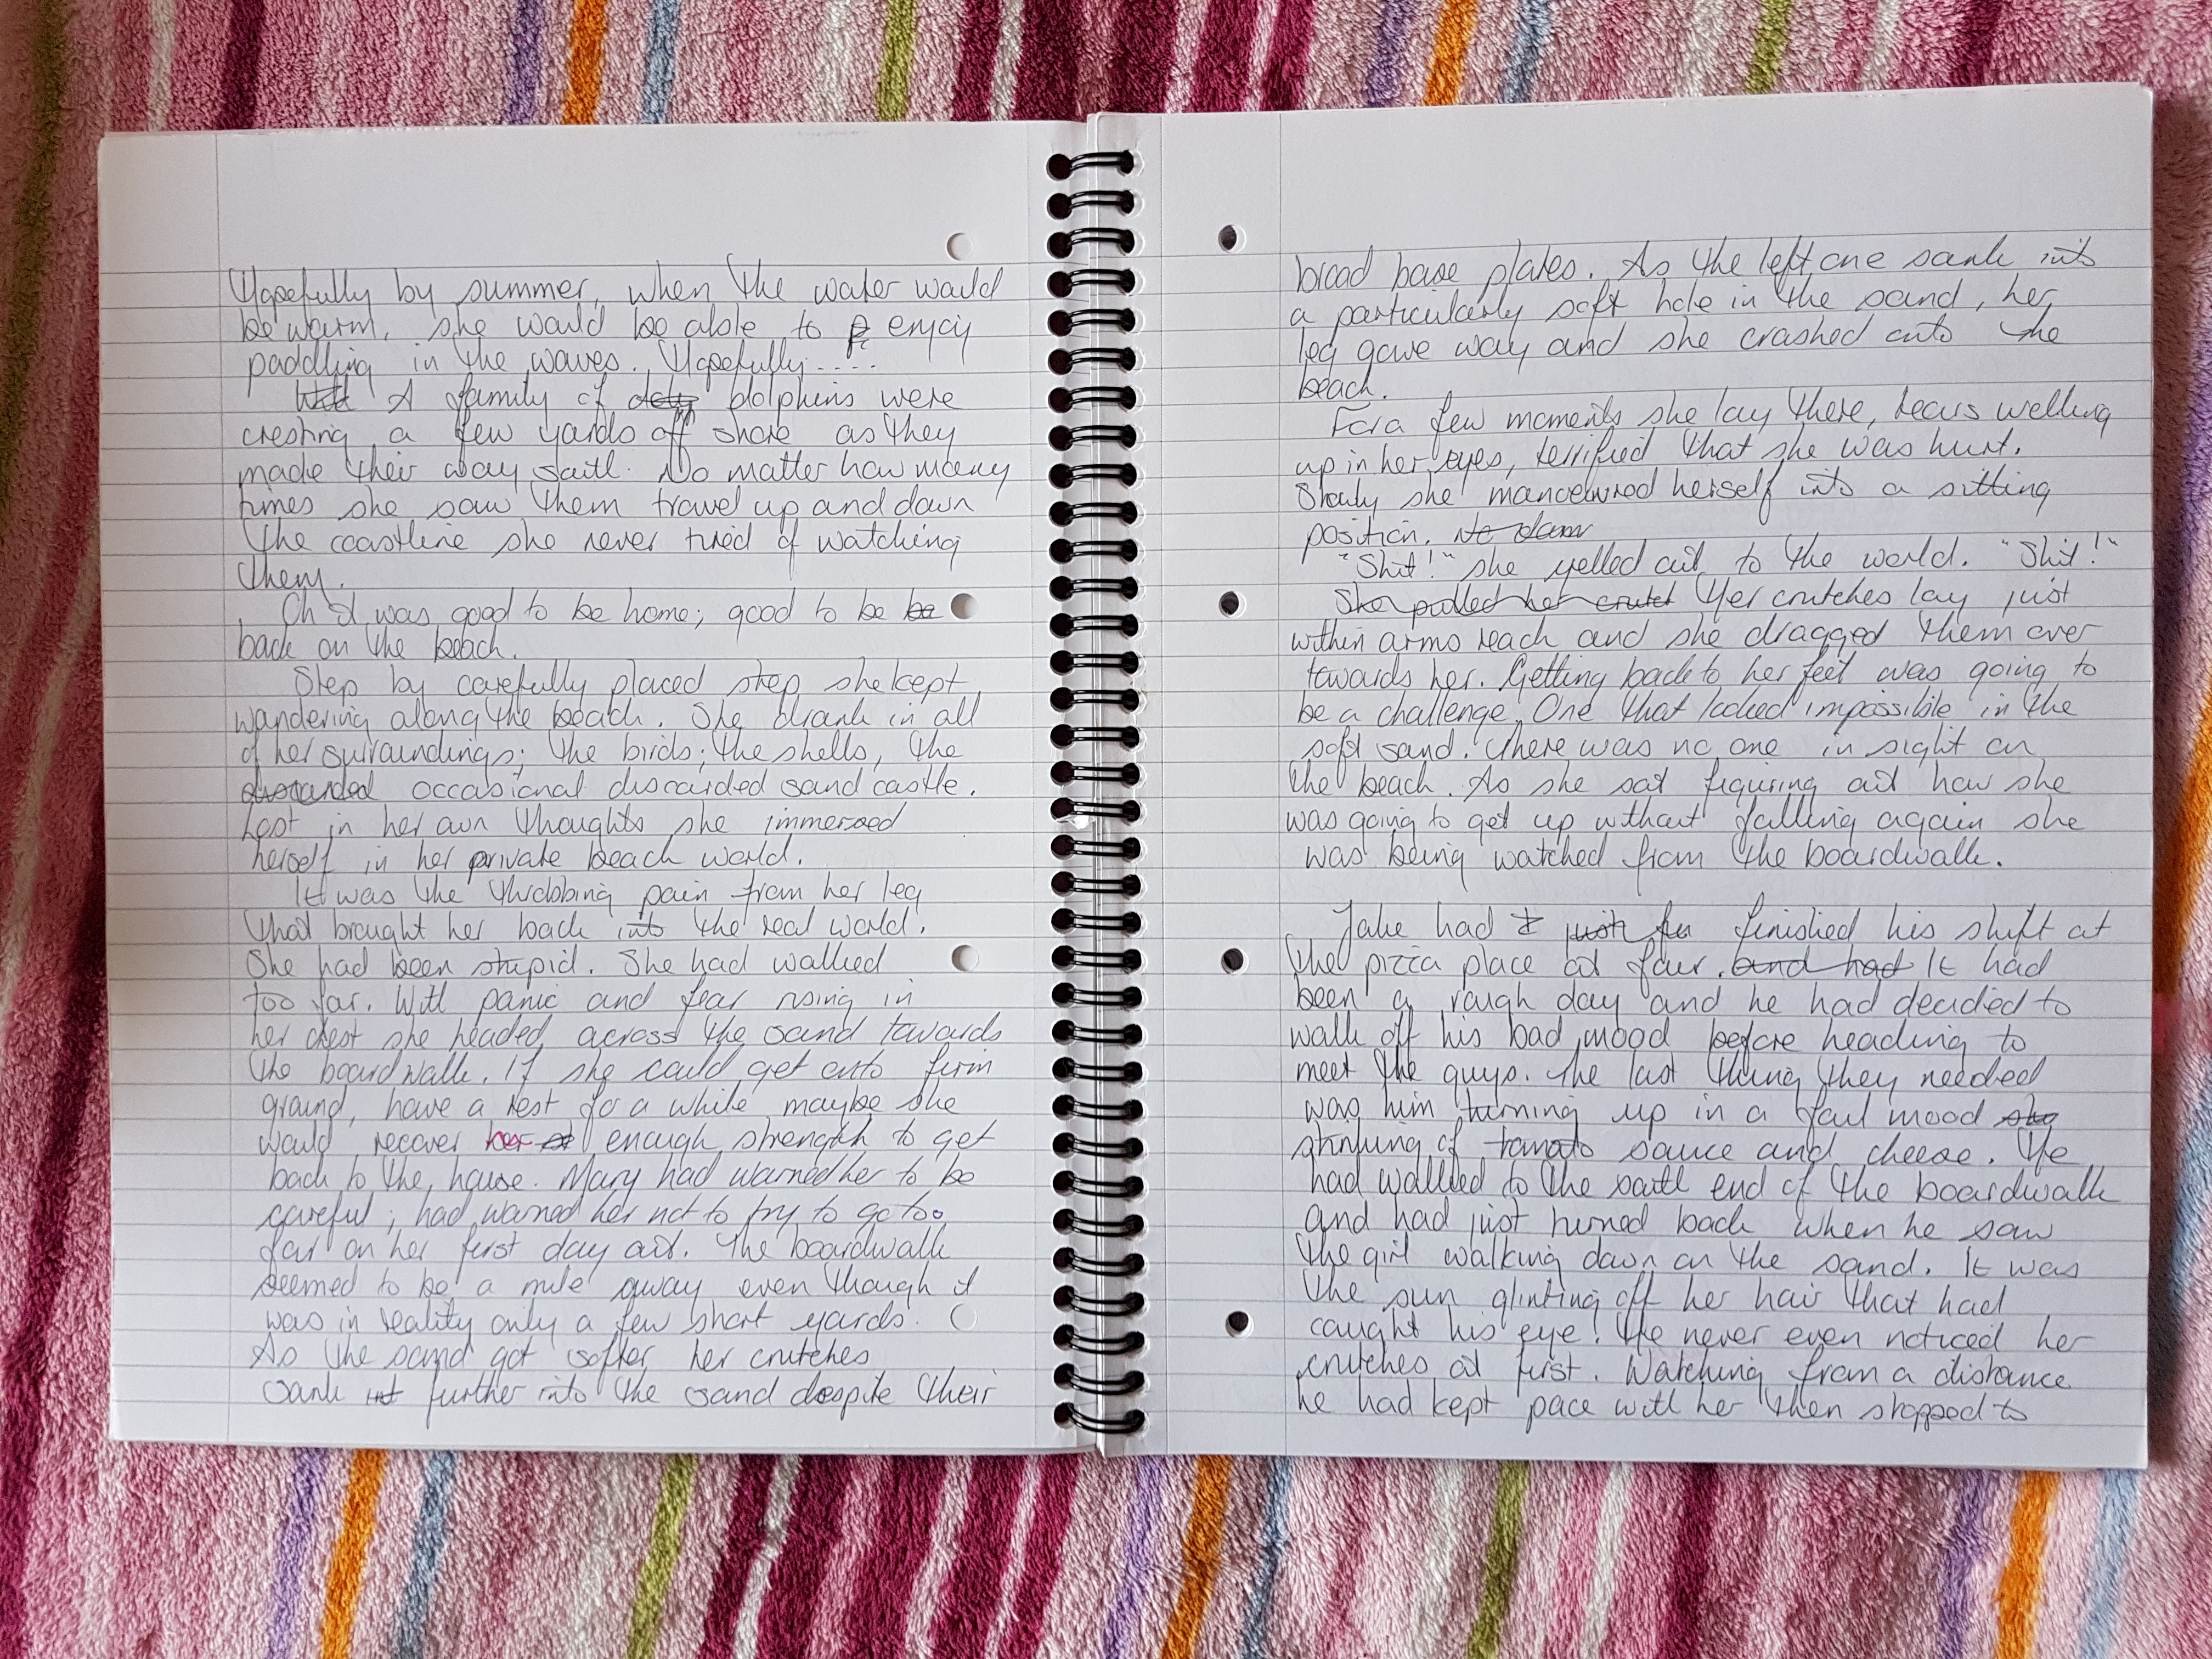 Hopefully by summer, when the water would
be warm, she would be able to enjoy
paddling in the waves. Hopefully....
A family of dolphins were
cresting a few yards off shore as they
made their way south. No matter how many
times she saw them travel up and down
the coastline she never tired of watching
them.
Oh it was good to be home; good to be be
back on the beach.
Step by carefully placed step she kept
wandering along the beach. She drank in all
of her surroundings; the birds; the shells, the
discarded occasional discarded sand castle.
Lost in her own thoughts she immersed
herself in her private beach world.
It was the throbbing pain from her leg
that brought her back into the real world.
She had been stupid. She had walked
too far. With panic and fear rising in
her chest she headed across the sand towards
the boardwalk. If she could get onto firm
ground, have a rest for a while maybe she
would recover her enough strength to get
back to the house. Mary had warned her to be
careful; had warned her not to try to go too
far on her first day out. The boardwalk
seemed to be a mile away even though it
was in reality only a few short yards.
As the sand got softer her crutches
sank int further into the sand despite their
broad base plates. As the left one sank into
a particularly soft hole in the sand, her
leg gave way and she crashed onto the
beach.
For a few moments she lay there, tears welling
up in her eyes, terrified that she was hurt.
Slowly she manoeuvred herself into a sitting
position. No dam
"Shit!" she yelled out to the world. "Shit!"
She pulled her crutch Her crutches lay just
within arms reach and she dragged them over
towards her. Getting back to her feet was going to
be a challenge. One that looked impossible in the
soft sand. There was no one in sight on
the beach. As she sat figuring out how she
was going to get up without falling again she
was being watched from the boardwalk.
Jake had just finished his shift at
the pizza place at four. and had It had
been a rough day and he had decided to
walk off his bad mood before heading to
meet the guys. The last thing they needed
was him turning up in a foul mood
stinking of tomato sauce and cheese. He
had walked to the south end of the boardwalk
and had just turned back when he saw
the girl walking down on the sand. It was
the sun glinting off her hair that had
caught his eye. He never even noticed her
crutches at first. Watching from a distance
he had kept pace with her then stopped to